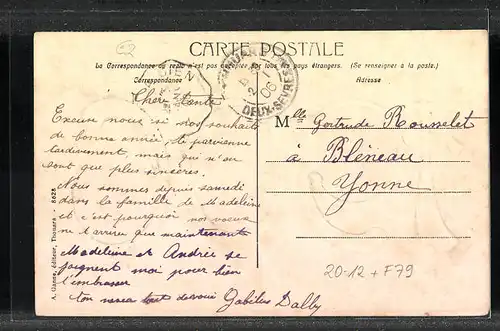 CARTE POSTALE
La Correspondance au recto n'est pas acceptée par tous les pays étrangers. (Se renseigner a la poste.)
Correspondance
Adresse
DEUX-SÈVRES
2 -1
06
Chère tante
Excuse nous si nos souhaits
de bonne année te parvienne
tardivement, mais qui n'en
sont que plus sincères.
Nous sommes depuis samedi
dans la famille de Madeleine
et c'est pourquoi nos voeux
ne t'arrive que maintenant
Madeleine et Andrée se
joignent moi pour bien
t'embrasser
ton neveu tout dévoué
Mlle Gertrude Rousselet
à Bléneau
Yonne
A. Giannes, éditeur, Thouars - 8628
20-12 + F79